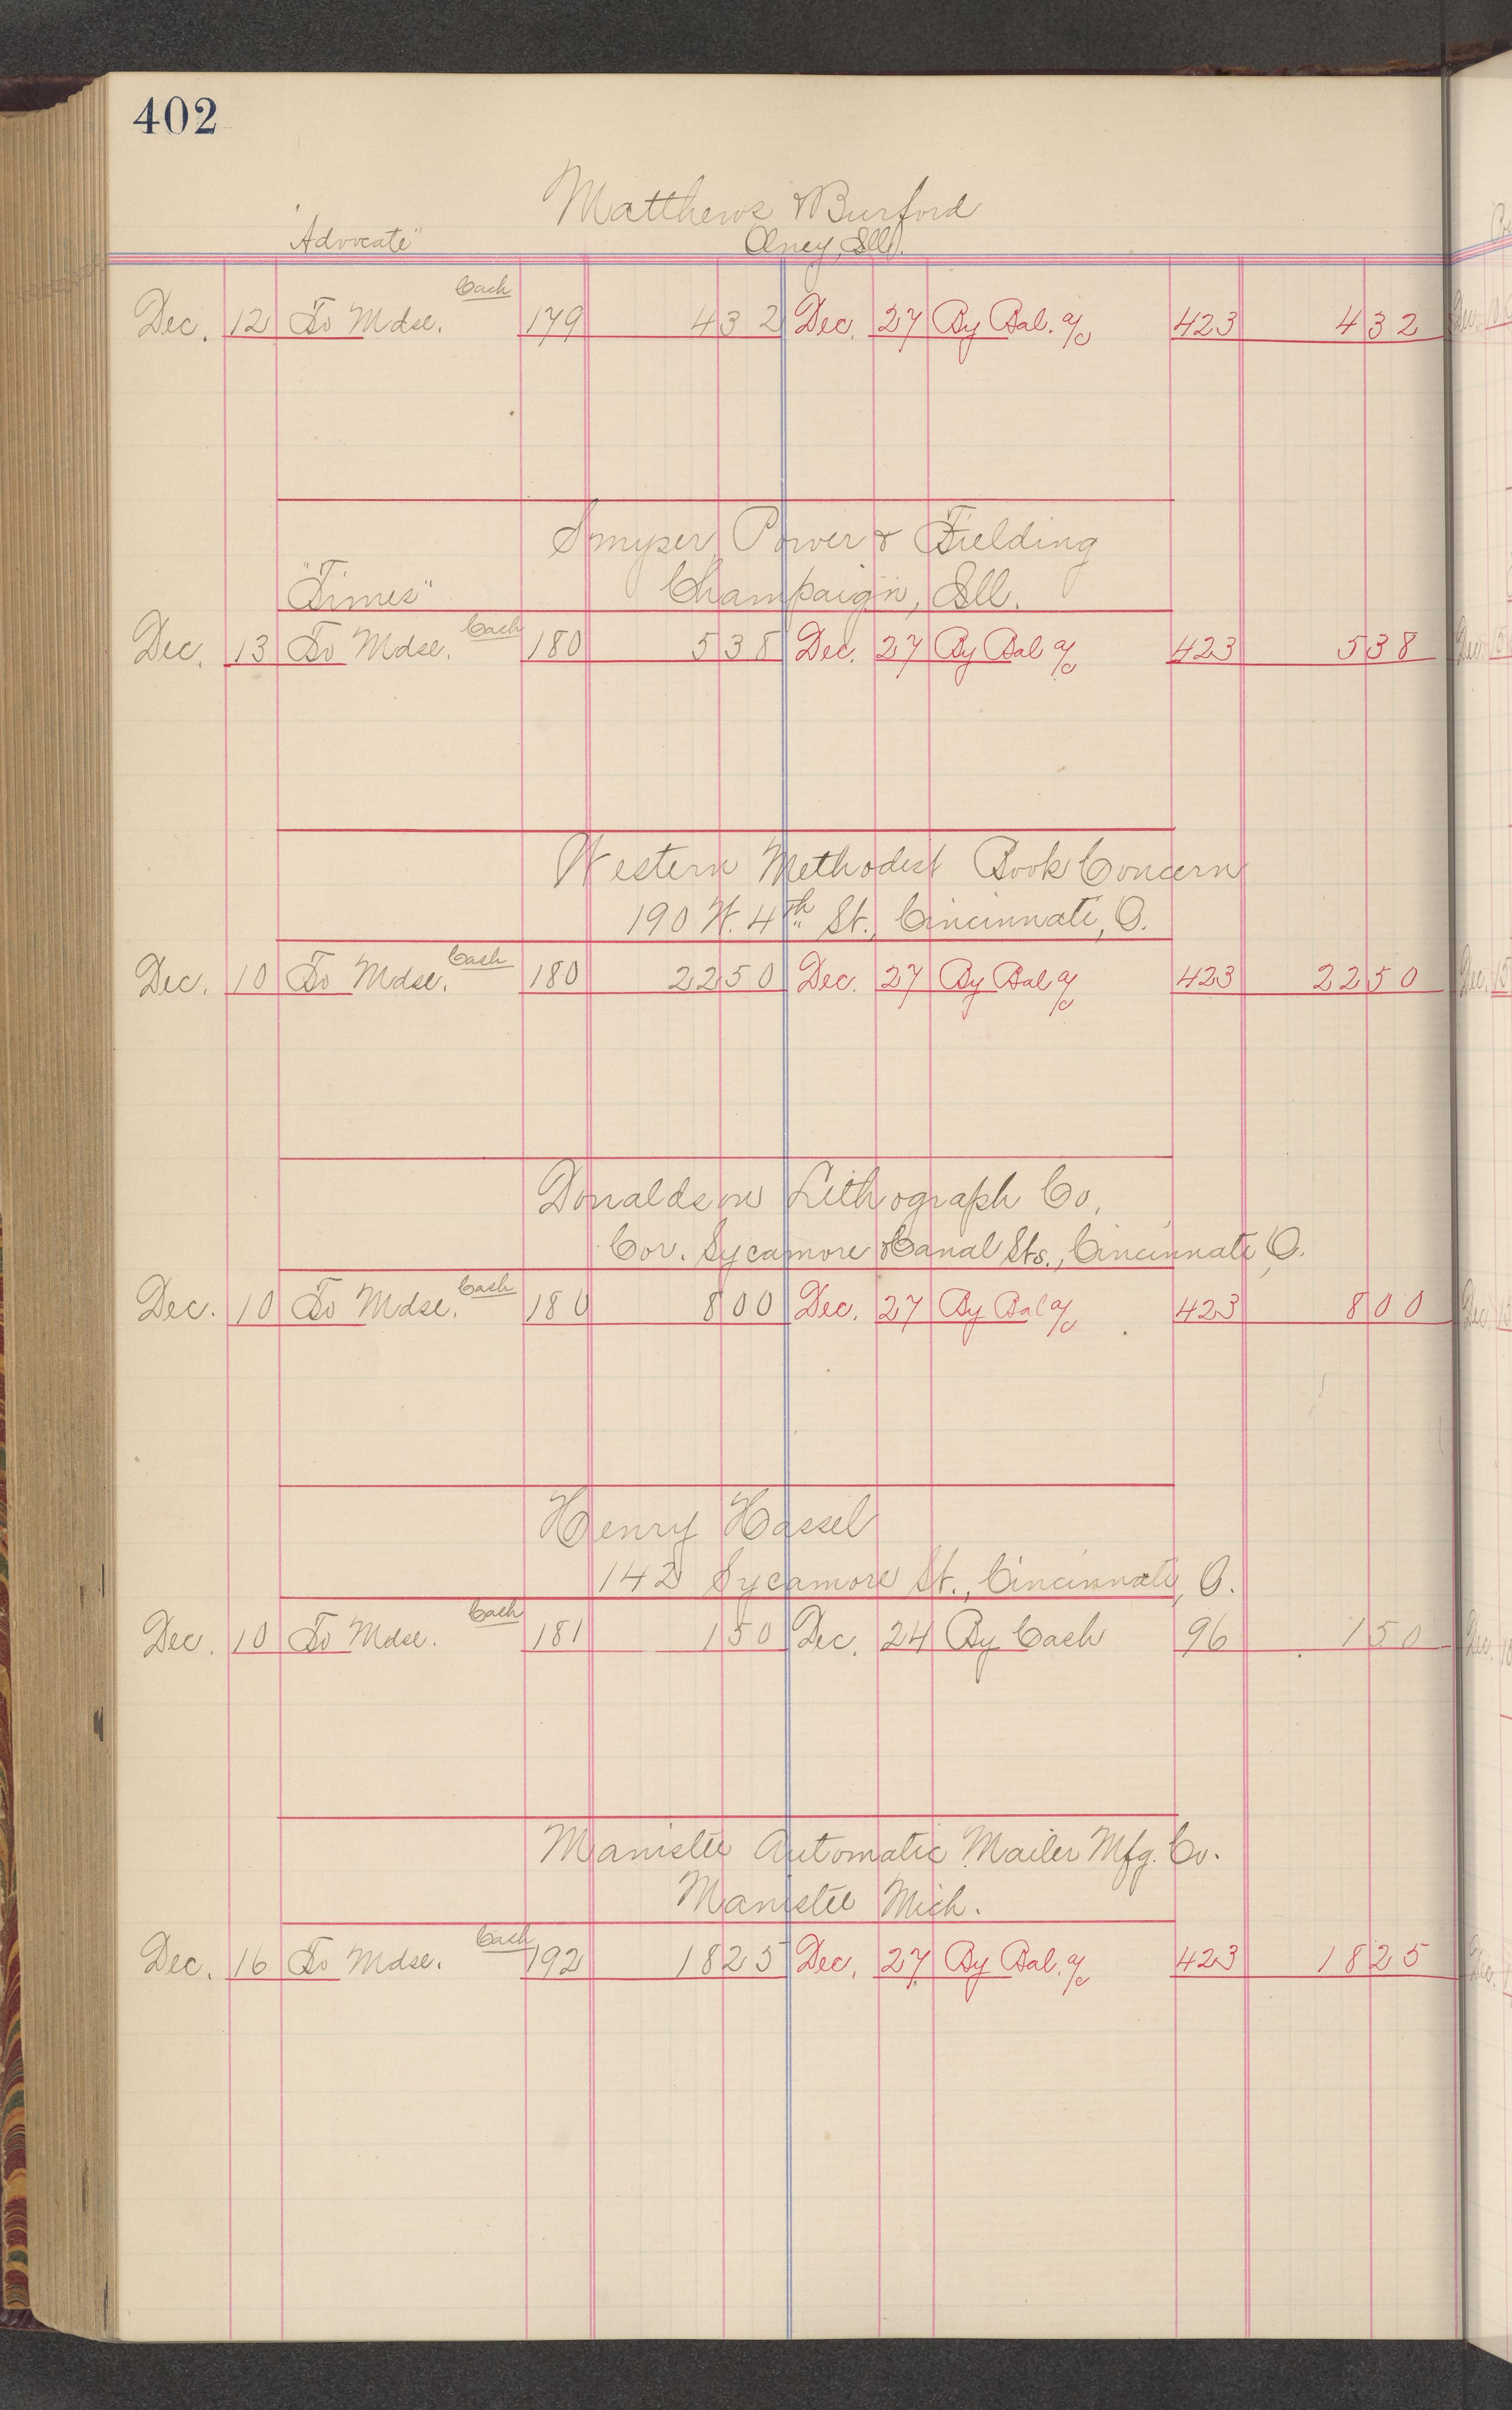 402
Matthews & Burford
"Advocate" Olney, Ill.
Cash
Dec. 12 To Mdse. 179 4 32 Dec. 27 By Bal. a/c 423 4 32
Smyser, Power & Fielding
"Times" Champaign, Ill.
Cash
Dec. 13 To Mdse. 180 5 38 Dec. 27 By Bal a/c 423 5 38
Western Methodist Book Concern
190 W. 4th St., Cincinnati, O.
Cash
Dec. 10 To Mdse. 180 22 50 Dec. 27 By Bal a/c 423 22 50
Donaldson Lithograph Co.
Cor. Sycamore & Canal Sts., Cincinnati, O.
Cash
Dec. 10 To Mdse. 180 8 00 Dec. 27 By Bal a/c 423 8 00
Henry Hassel
142 Sycamore St., Cincinnati, O.
Cash
Dec. 10 To Mdse. 181 1 50 Dec. 24 By Cash 96 1 50
Manistee Automatic Mailer Mfg. Co.
Manistee Mich.
Cash
Dec. 16 To Mdse. 192 18 25 Dec. 27 By Bal. a/c 423 18 25